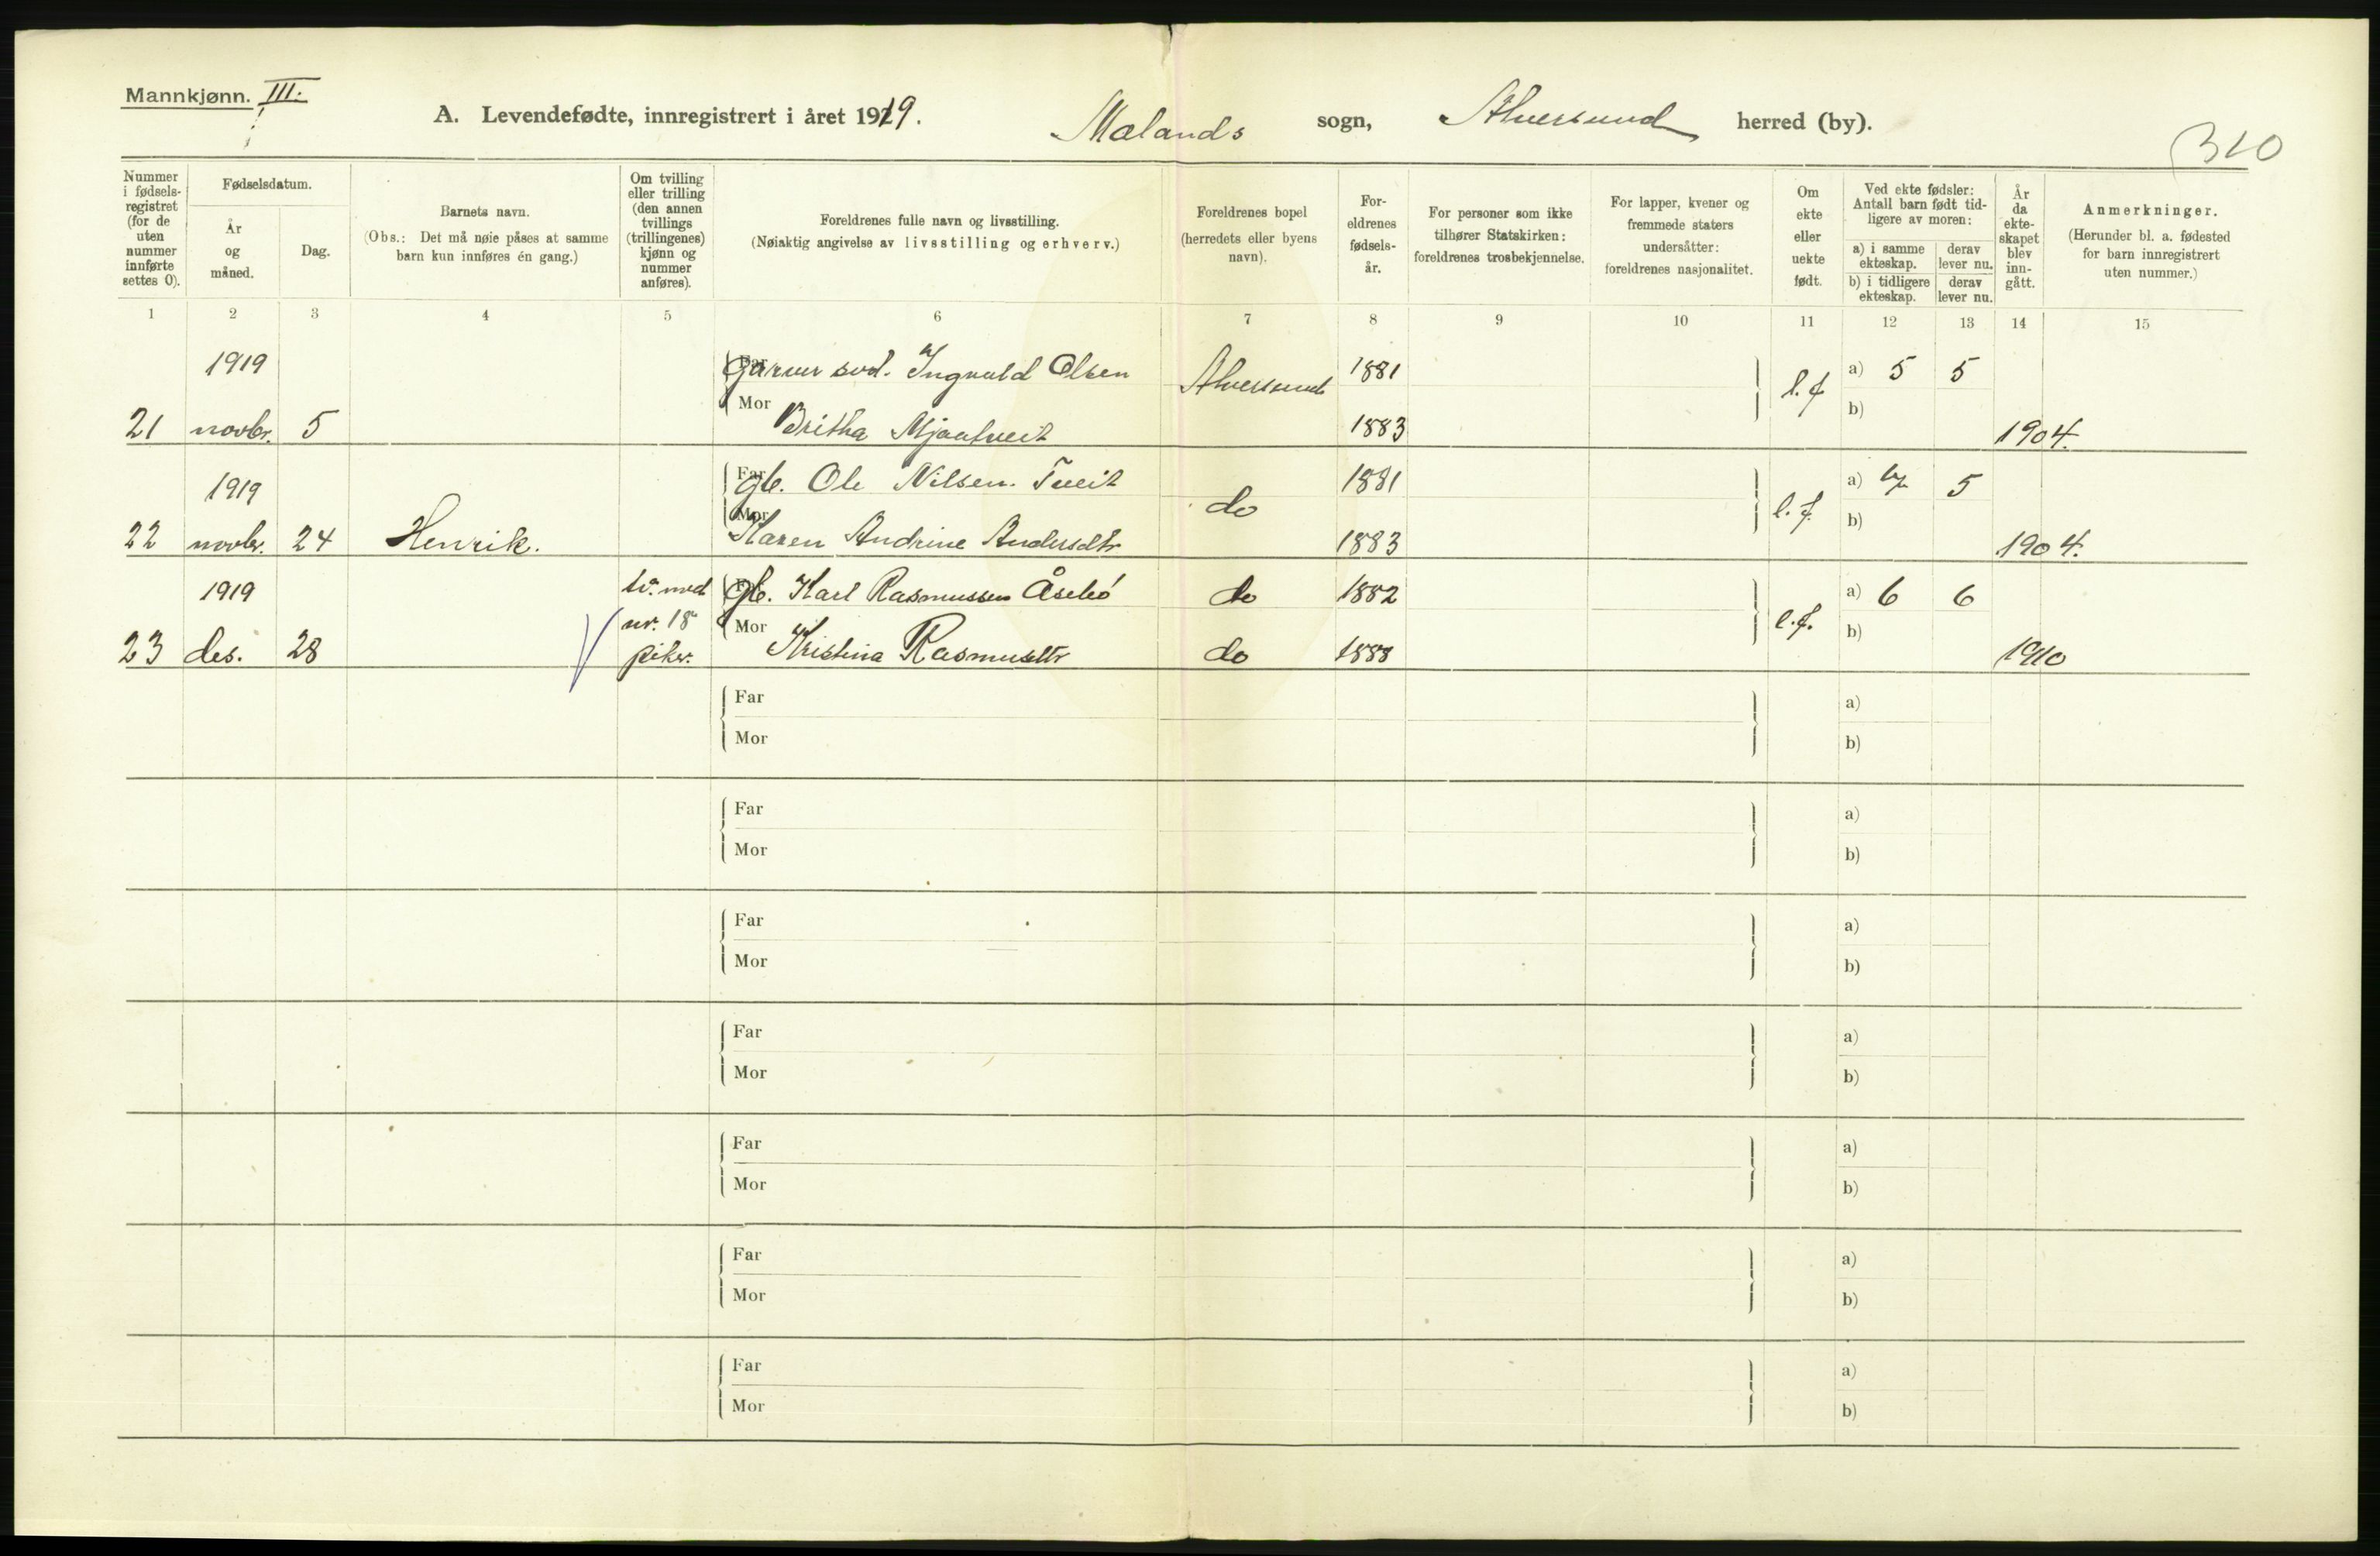 Mannkjønn. III.
A. Levendefødte, innregistrert i året 1919. Mælands sogn, Alversund herred (by).
310
Nummer i fødsels- registret (for de uten nummer innførte settes 0).
Fødselsdatum.
År og måned.
Dag.
Barnets navn.
(Obs.: Det må nøie påses at samme barn kun innføres én gang.)
Om tvilling eller trilling (den annen tvillings (trillingenes) kjønn og nummer anføres).
Foreldrenes fulle navn og livsstilling.
(Nøiaktig angivelse av livsstilling og erhverv.)
Foreldrenes bopel (herredets eller byens navn).
For- eldrenes fødsels- år.
For personer som ikke tilhører Statskirken: foreldrenes trosbekjennelse.
For lapper, kvener og fremmede staters undersåtter: foreldrenes nasjonalitet.
Om ekte eller uekte født.
Ved ekte fødsler: Antall barn født tid- ligere av moren:
a) i samme ekteskap.
derav lever nu.
b) i tidligere ekteskap.
derav lever nu.
År da ekte- skapet blev inn- gått.
Anmerkninger.
(Herunder bl. a. fødested for barn innregistrert uten nummer.)
1 2 3 4 5 6 7 8 9 10 11 12 13 14 15
1919 Far Garver svd. Ingvald Olsen Alversund 1881 l. f a) 5 5
21 novbr. 5 Mor Britha Mjaatveit 1883 b) 1904.
1919 Far gb. Ole Nilsen Tveit do 1881 l. f. a) 5
22 novbr. 24 Henrik. Mor Karen Andrine Andersdtr 1883 b) 1904.
1919 tv. med gb. Karl Rasmussen Åsebö do 1882 l. f. a) 6 6
nr. 18 Mor b)
23 des. 28 piker. Kristina Rasmusdtr do 1888 1910
Far a)
Mor b)
Far a)
Mor b)
Far a)
Mor b)
Far a)
Mor b)
Far a)
Mor b)
Far a)
Mor b)
Far a)
Mor b)